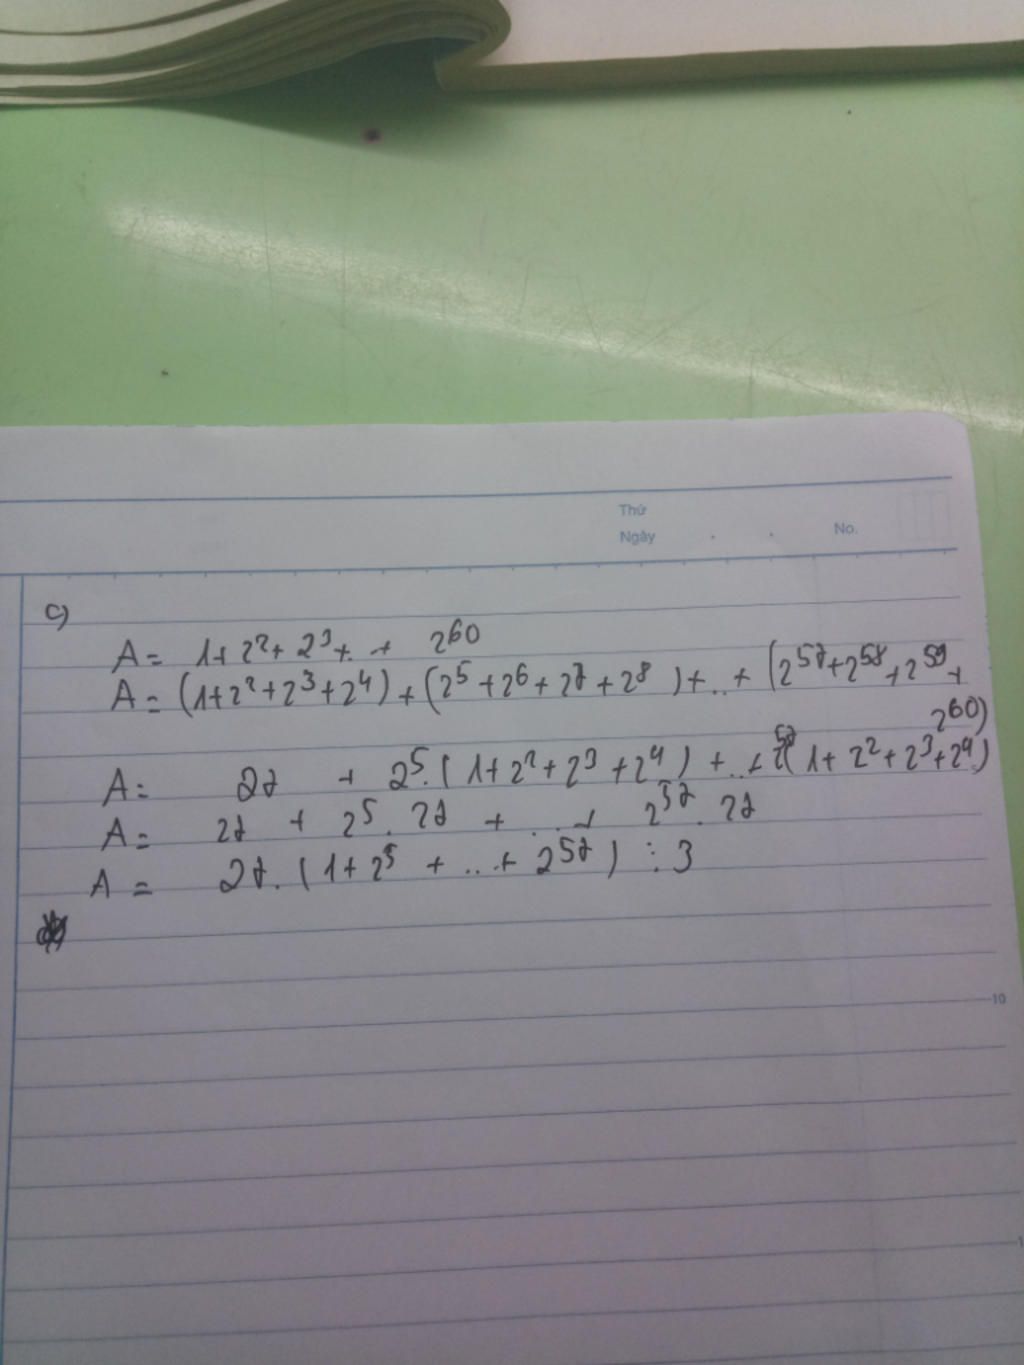 Thứ
Ngày . . No.
c)
A = 1+ 2² + 2³ + .. + 2⁶⁰
A = (1+2²+2³+2⁴) + (2⁵+2⁶+2⁷+2⁸) + .. + (2⁵⁷+2⁵⁸+2⁵⁹+
2⁶⁰)
A = 27 + 2⁵.(1+2²+2³+2⁴) + .. + 2⁵⁷(1+2²+2³+2⁴)
A = 27 + 2⁵. 27 + ... + 2⁵⁷. 27
A = 27.(1+2⁵ + ... + 2⁵⁷) ⋮ 3
10